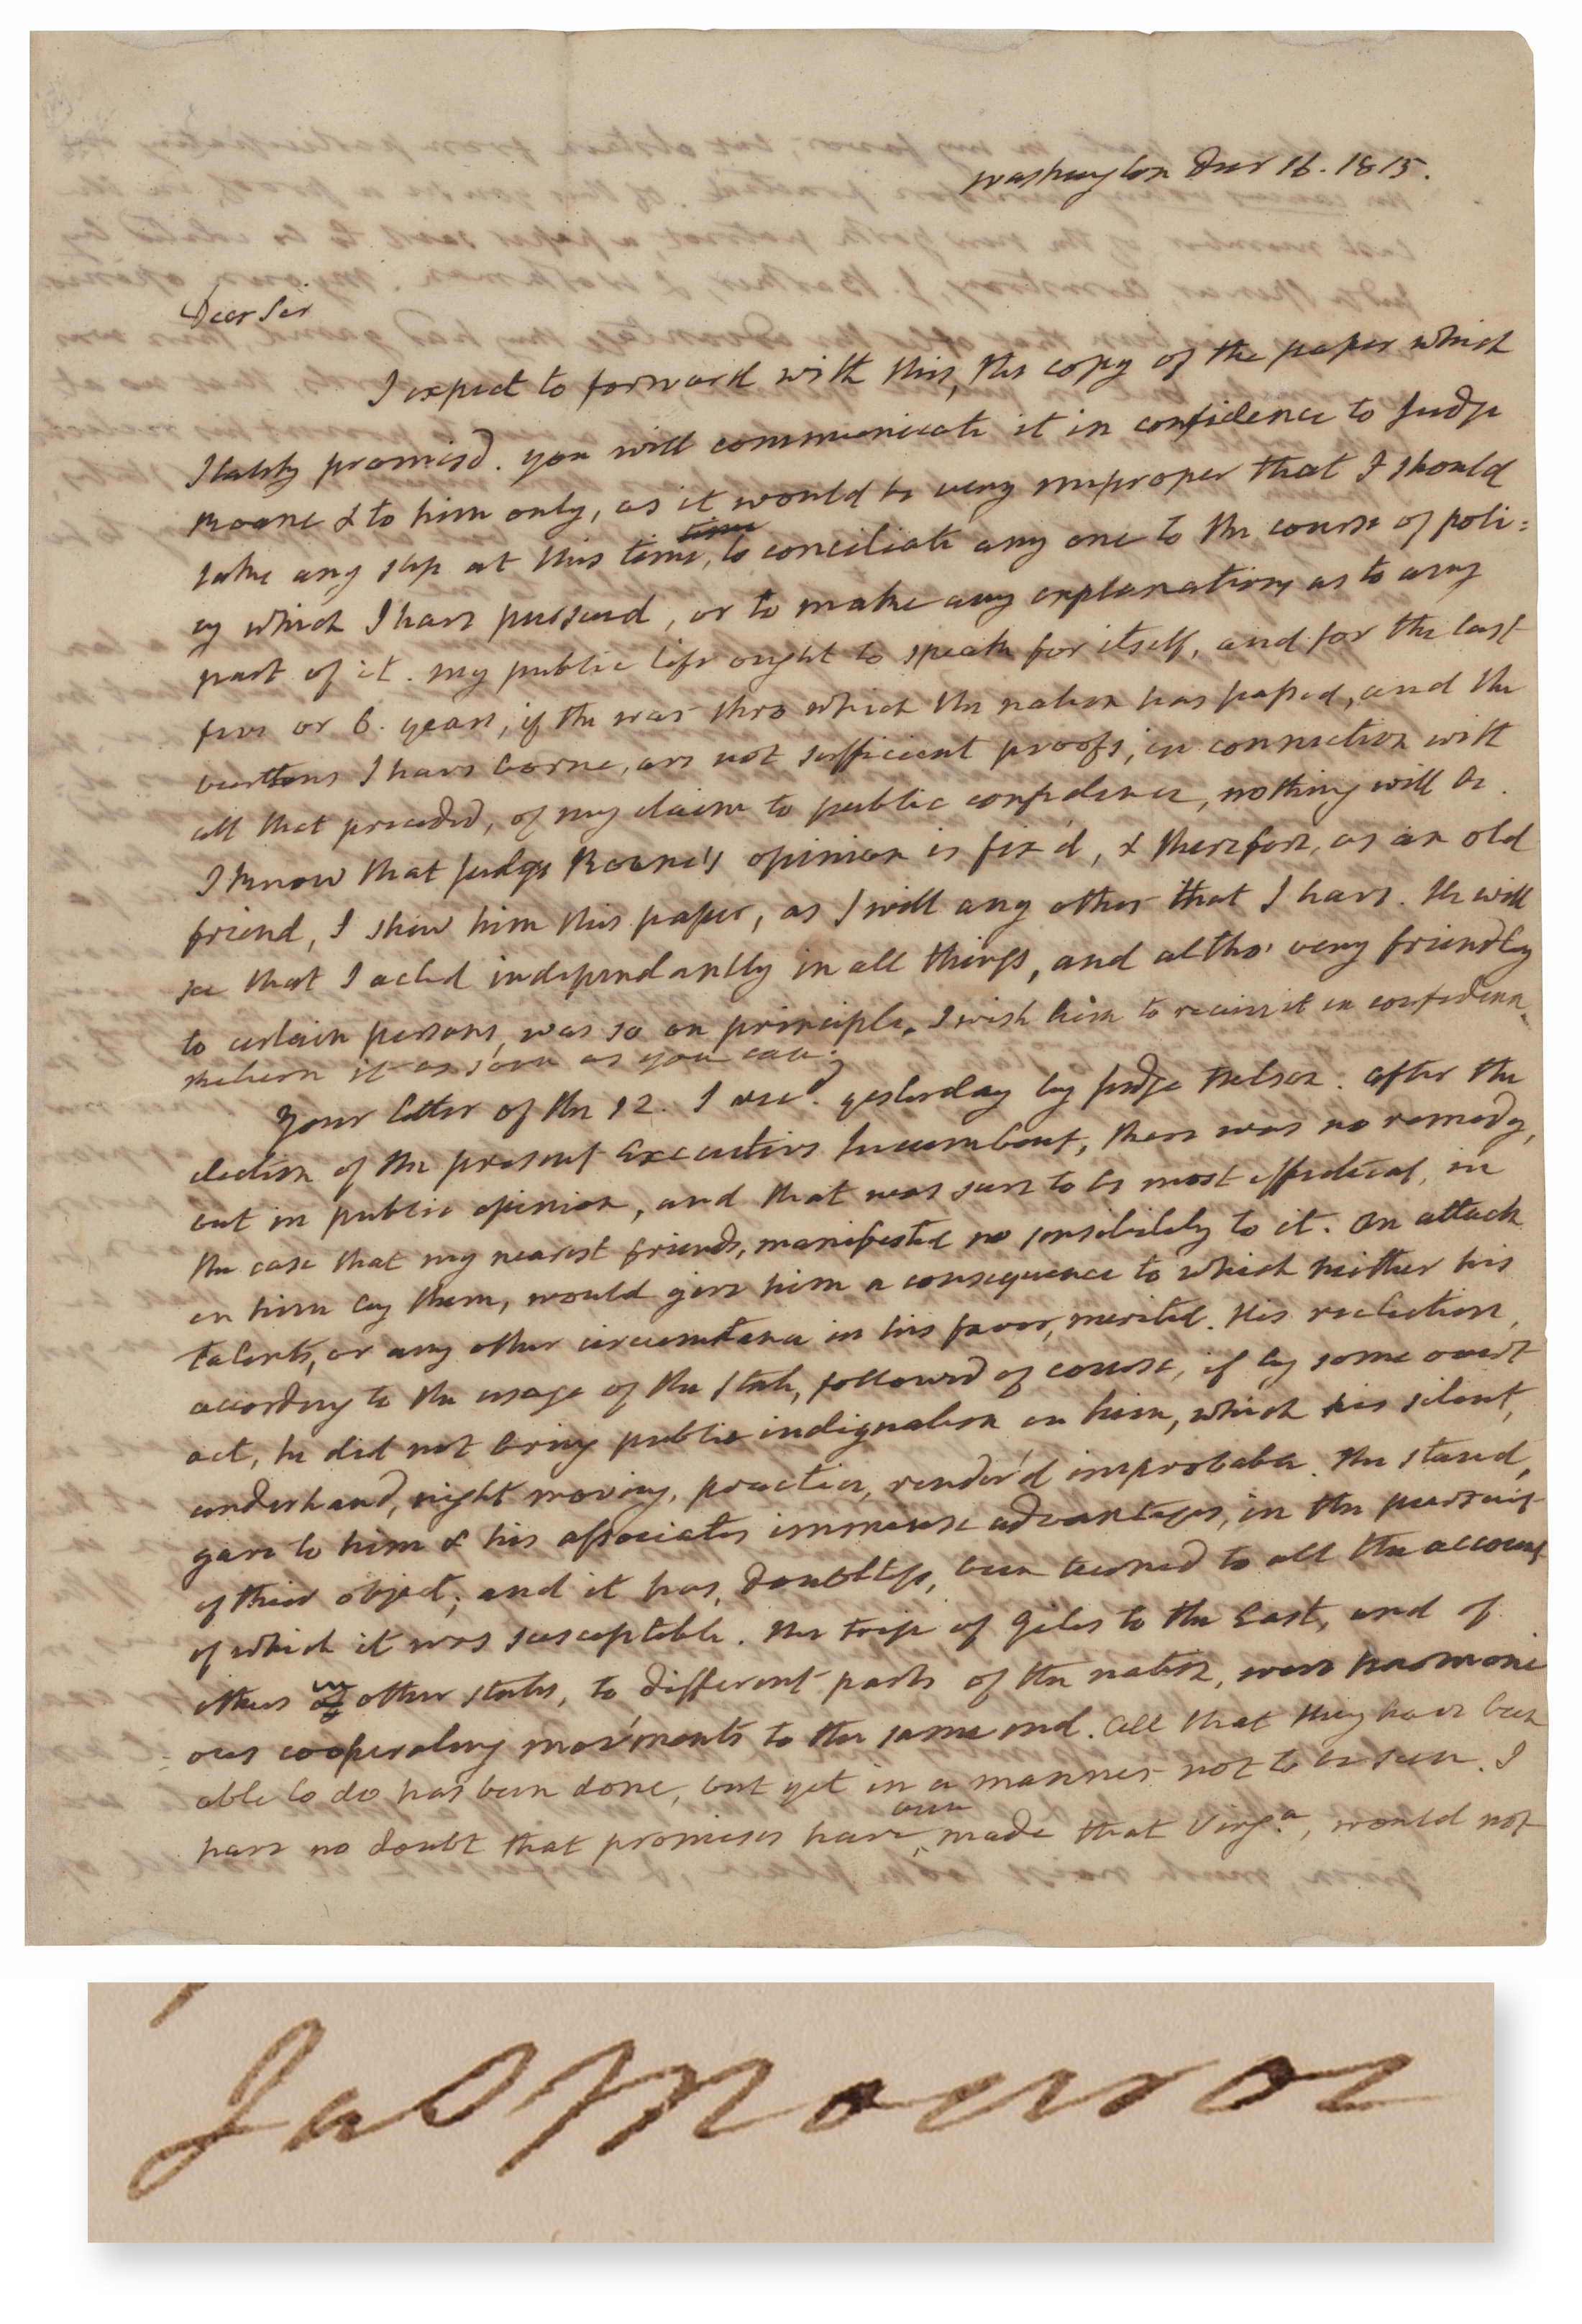 Washington Decr 16. 1815.
Dear Sir
I expect to forward with this, the copy of the paper which
I lately promisd. you will communicate it in confidence to Judge
Roane & to him only, as it would be very improper that I should
take any step at this time, time to conciliate any one to the course of poli=
cy which I have pursued, or to make any explanations as to any
part of it. my public life ought to speak for itself, and for the last
five or 6. years, if the war thro which the nation has passed, and the
burthens I have borne, are not sufficient proofs, in connection with
all that preceded, of my claim to public confidence, nothing will be.
I know that Judge Roane's opinion is fix'd, & therefore, as an old
friend, I shew him this paper, as I will any other that I have. He will
see that I acted independantly in all things, and altho' very friendly
to certain persons, was so on principle. I wish him to receive it in confidence,
return it as soon as you can.
Your letter of the 12. I recd. yesterday by Judge Nelson. After the
election of the present Executive Incumbent, there was no remedy,
but in public opinion, and that was sure to be most effectual, in
the case that my nearest friends, manifested no sensibility to it. An attack
on him by them, would give him a consequence to which neither his
talents, or any other circumstance in his favor, merited. His reelection,
according to the usage of the State, followed of course, if by some overt
act, he did not bring public indignation on him, which his silent,
underhand, night moving, practices, render'd improbable. The stand,
gave to him & his associates immense advantages, in the pursuit
of their object; and it has, doubtless, been turned to all the account
of which it was susceptible. The trip of Giles to the East, and of
others in of other States, to different parts of the nation, were harmoni
ous cooperating mov'ments to the same end. All that they have been
able to do has been done, but yet in a manner not to be seen. I
have no doubt that promises have been made that Virga., would not
Jas Monroe